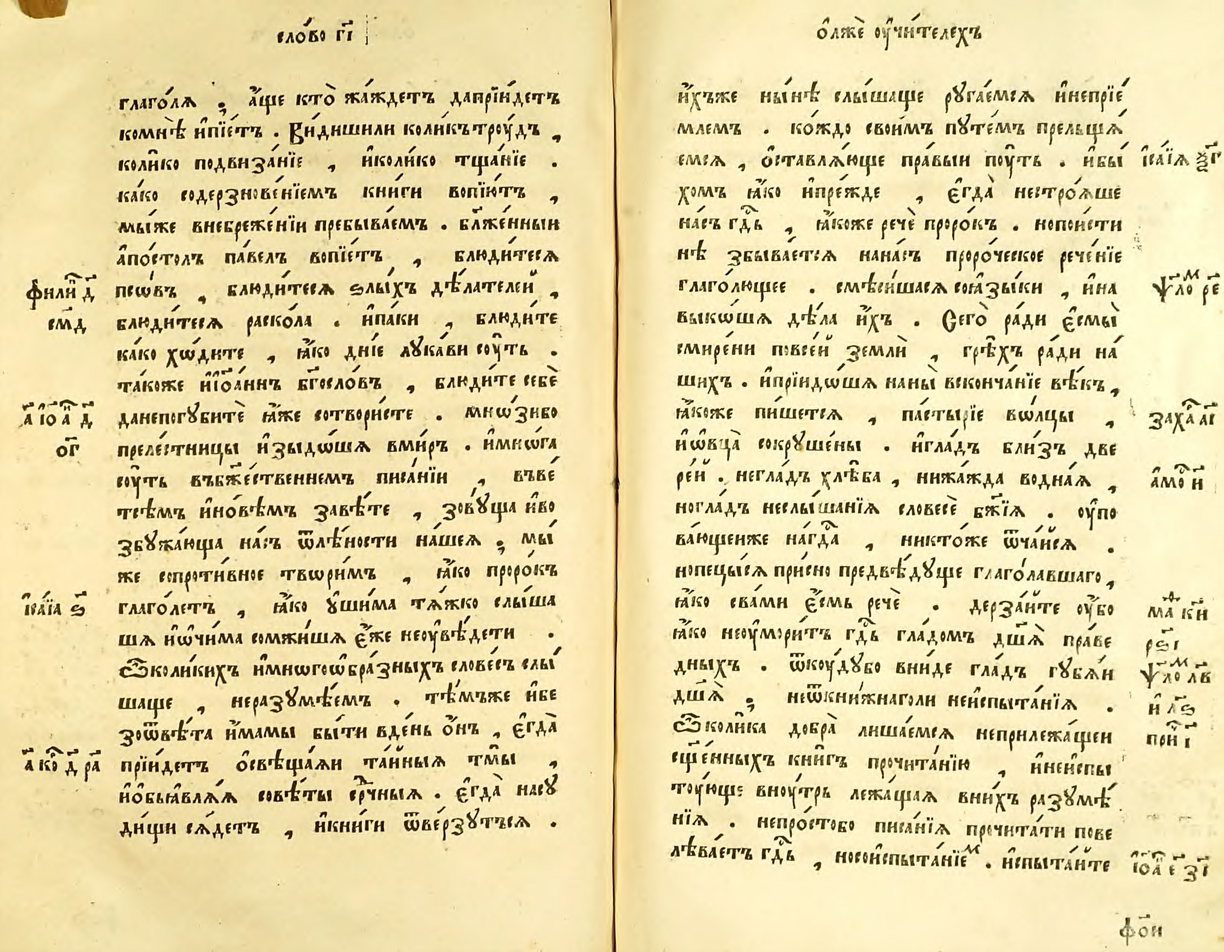 сло́во г҃і
глаго́лѧ ; а҆́ще кто̀ жа́ждетъ дапрїи́детъ
комнѣ̀ и҆пїе́тъ . Ви́дишили коли́къ трꙋ́дъ ,
коли́ко подвиза́нїе , и҆коли́ко тща́нїе .
ка́ко содерзнове́нїемъ книги вопїю́тъ ,
мы́же внебреже́нїи пребыва́емъ . бл҃же́нныи
а҆по́столъ па́велъ вопїе́тъ , блюди́тесѧ
псѡ́въ , блюди́тесѧ ѕлы́хъ дѣ́лателей ,
блюди́тесѧ раско́ла . и҆па́ки , блюди́те
ка́ко хѡ́дите , ꙗ҆́ко дні́е лꙋка́ви сꙋ́ть .
та́коже и҆і҆ѡа́ннъ бг҃осло́въ , блюди́те себѐ
данепогꙋби́те ꙗ҆̀же сотвори́сте . мнѡ́зибо
преле́стницы и҆зыдѡ́шѧ вми́ръ . и҆мнѡ́га
сꙋ́ть въбж҃е́ственнемъ писа́нїи , въве́
тсѣмъ и҆но́вѣмъ завѣ́те , зовꙋ́ща и҆во
збꙋжа́юща на́съ ѿлѣ́ности на́шеѧ ; мы́
же сопроти́вное твѡри́мъ , ꙗ҆́ко проро́къ
глаго́летъ , ꙗ҆́ко ᲂу҆ши́ма тѧ́жко слы́ша
шѧ и҆ѻ҆чи́ма сомжи́шѧ є҆́же неᲂу҆вѣ́дети .
Ѿколи́кихъ и҆мнѡгоѡ҆бра́зныхъ слове́съ слы́
шаще , неразꙋмѣ́емъ . тѣ́мъже и҆бе
зоѿвѣ́та и҆́мамы бы́ти вде́нь ѻ҆́нъ , є҆гда̀
прїи́детъ ѡ҆свѣща́ѧи та́йныѧ тмы̀ ,
и҆ѡбъѧвлѧ́ѧ совѣ́ты срⷣчныѧ . є҆гда̀ насꙋ
ди́щи сѧ́детъ , и҆кни́ги ѿве́рзꙋтьсѧ .
фили҃ д҃
см҃д
а҃ і҆ѡа҃ д҃
ѻ҃г
и҆са́їа ѕ҃
а҃ ко҃ д҃ ра҃
ѡ҆лжѐ ᲂу҆чи́телехъ
и҆́хъже ны́нѣ слы́шаще рꙋга́емсѧ и҆непрїе́
млемъ . ко́ждо свои́мъ пꙋте́мъ прельща́
емсѧ , ѡ҆ставлѧ́юще пра́выи пꙋ́ть . и҆бы́
хомъ ꙗ҆́ко и҆пре́жде , є҆гда̀ нестро́ѧше
на́съ гдⷭ҇ь , ꙗ҆́коже речѐ проро́къ . нопои́сти
нѣ̀ збыва́етсѧ нана́съ проро́ческое рече́нїе
глаго́лющее . смѣси́шасѧ соꙗ҆зы́ки , и҆на
выко́шѧ дѣла̀ и҆́хъ . Сего̀ ра́ди є҆смы̀
смире́ни повсе́й землѝ , грѣ́хъ ра́ди на́
шихъ . и҆прїидѡ́шѧ наны̀ вскончанїе вѣ́къ ,
ꙗ҆́коже пи́шетсѧ , па́стырїе вѡ́лцы ,
и҆ѻ҆́вца̀ сокрꙋше́ны . и҆гла́дъ бли́зъ две
ре́й . негла́дъ хлѣ́ба , нижа́жда во́днаѧ ,
ногла́дъ неслы́шанїѧ словесѐ бж҃їѧ . ᲂу҆по
ва́ющеиже нагдⷭ҇а , никто́же ѿча́йсѧ .
нопецы́сѧ при́сно предвѣ́дꙋще глаго́лавшаго ,
ꙗ҆́ко сва́ми є҆́смь речѐ . дерза́йте ᲂу҆̀бо
ꙗ҆́ко неᲂу҆мори́тъ гдⷭ҇ь гла́домъ дш҃ѧ̀ пра́ве
дныхъ . ѿкꙋ́дꙋбо вни́де гла́дъ гꙋбѧ́и
дш҃ѧ̀ ; неѿкни́жнаголи неиспыта́нїѧ .
Ѿколи́ка добра̀ лиша́емсѧ неприлежа́щеи
сщ҃е́нныхъ кни́гъ прочита́нїю , и҆неиспы
тꙋ́юще внꙋ́трь лежа́щаѧ вни́хъ разꙋмѣ́
нїѧ . непро́стобо писа́нїѧ прочита́ти пове
лѣва́етъ гдⷭ҇ь , носоиспыта́нїеⷨ . и҆спыта́йте
и҆са́їѧ ѯ҃г
ѱаⷧ҇о҇ⷨ ре
заха҃ аі҃
а҆мо҃ и҃
маⷴ҇ ки҃
рѕ҃і
ѱаⷧ҇о҇ⷨ лв
и҆ лѕ҃
при҃ і҃
і҆ѡа҃ е҃ зі҃
фо҃и